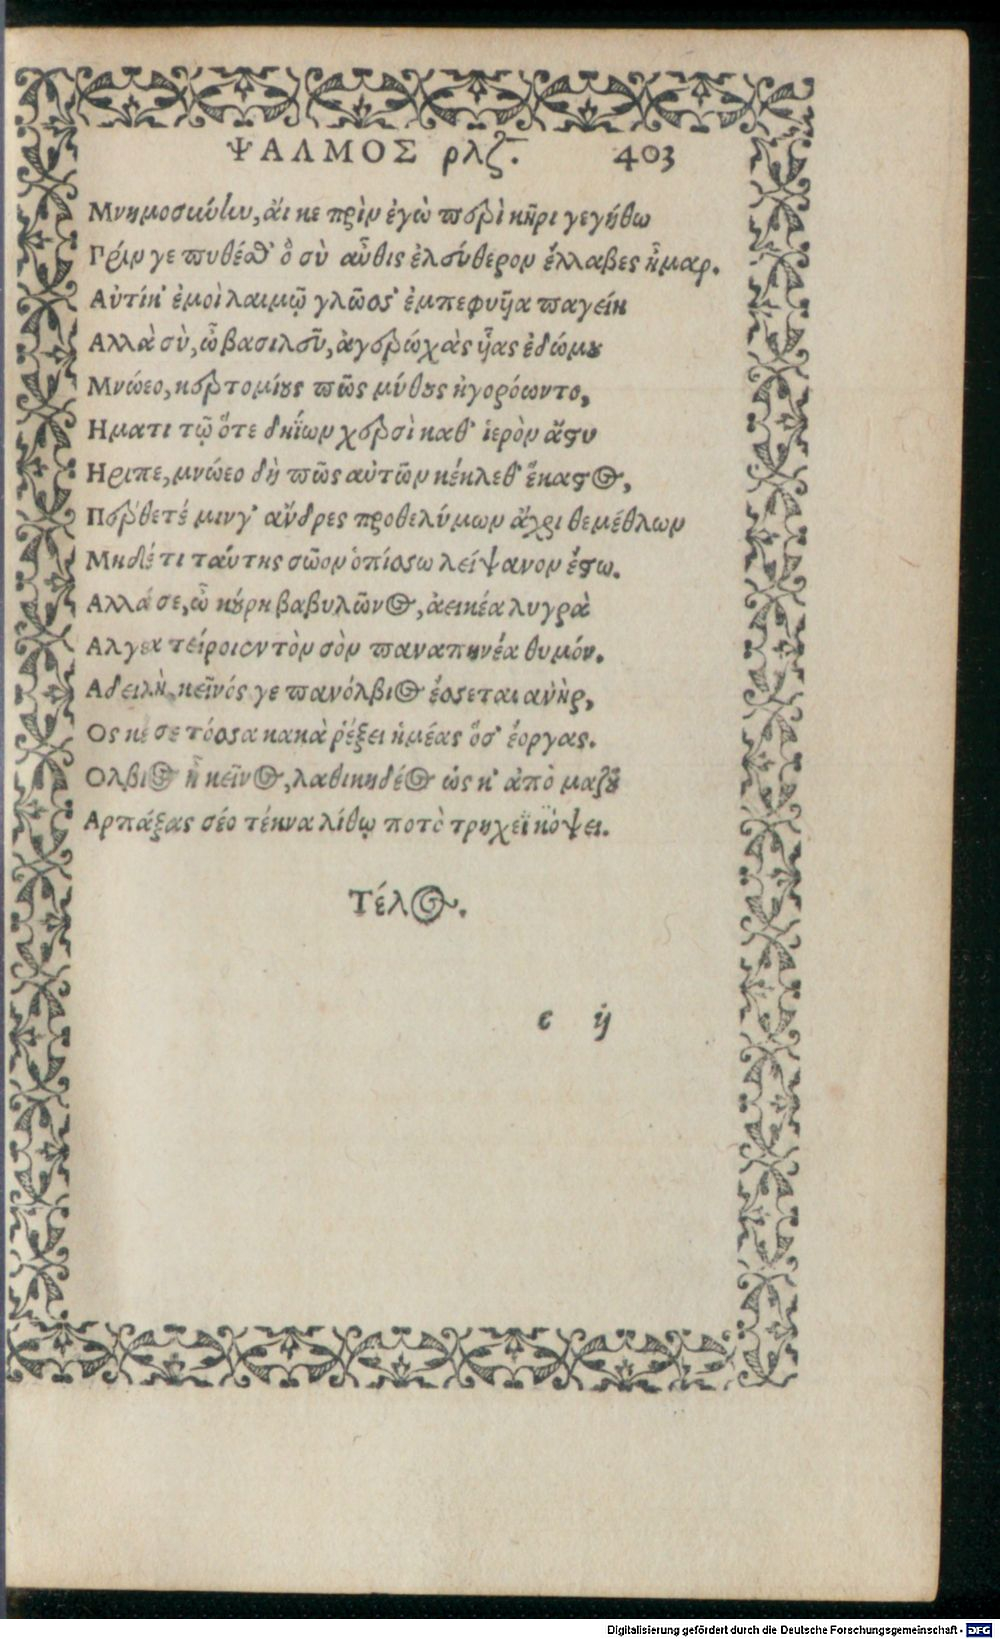 ΨΑΛΜΟΣ ρλζ. 403
Μνημοσύνην, ἄι κε πρὶν ἐγὼ περὶ κῆρι γεγήθω
Πρίν γε πυθέσθ' ὃ σὺ αὖθις ἐλεύθερον ἔλλαβες ἦμαρ.
Αὐτίκ' ἐμοὶ λαιμῷ γλῶσσ' ἐμπεφυῆα παγείη
Αλλὰ σὺ, ὦ βασιλεῦ, ἀγερώχὰς ἧας ἐδώμου
Μνώεο, κερτομίους πῶς μύθους ἠγορόωντο,
Ηματι τῷ ὅτε δηΐων χερσὶ καθ' ἱερὸν ἄστυ
Ηριπε, μνώεο δὴ πῶς αὐτῶν κέκλεθ' ἕκαστος,
Πέρθετέ μινγ' ἄνδρες προθελύμων ἄχρι θεμέθλων
Μηδέ τι ταύτης σῶον ὀπίσσω λείψανον ἔστω.
Αλλά σε, ὦ κούρη βαβυλῶνος, ἀεικέα λυγρὰ
Αλγεα τείροισν τὸν σὸν παναπηνέα θυμόν.
Α δειλὴ, κεῖνός γε πανόλβιος ἔσσεται ἀνὴρ,
Ος κέ σε τόσσα κακὰ ῥέξει ἡμέας ὅσ' ἔοργας.
Ολβιος ἦ κεῖνος, λαθικηδέος ὡς κ' ἀπὸ μαζοῦ
Αρπάξας σέο τέκνα λίθῳ ποτὶ τρηχεῖ κόψει.
Τέλος.
c ij
Digitalisierung gefördert durch die Deutsche Forschungsgemeinschaft - DFG